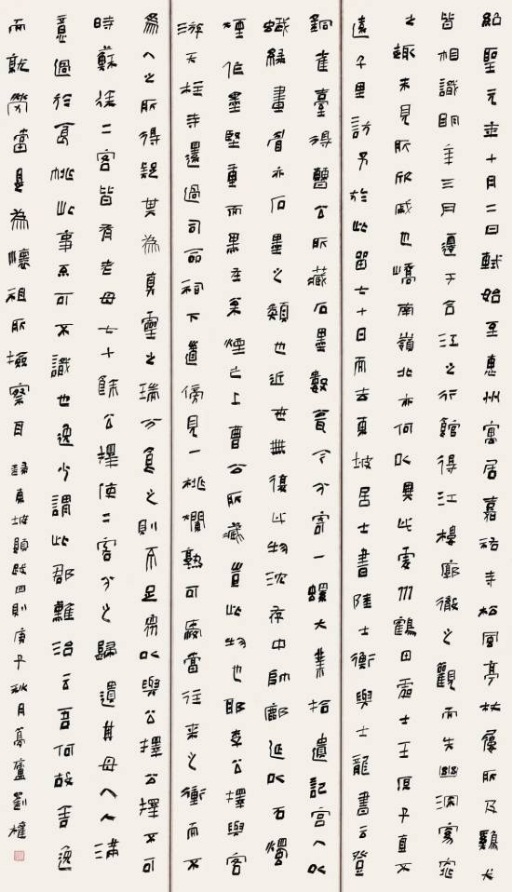 紹聖元年十月二日軾始至惠州寓居嘉祐寺松風亭杖屨所及雞犬
皆相識明年三月遷于合江之行館得江樓廓徹之觀而失幽深窈窕
之趣未見所欣戚也嶠南嶺北亦何以異此虔州鶴田處士王原子直不
遠千里訪予於此留七十日而去東坡居士書陸士衡與士龍書云登
銅雀臺得曹公所藏石墨數甕今分寄一螺大業拾遺記宮人以
蛾綠畫眉亦石墨之類也近世無復此物沈存中帥鄜延以石燭
煙作墨堅重而黑在松煙之上曹公所藏豈此物也耶李公擇與客
游天柱寺還過司命祠下道傍見一桃爛熟可愛當往來之衝而不
為人之所得疑其為真靈之瑞分食之則不足衆以與公擇公擇不可
時蘇徐二客皆有老母七十餘公擇使二客分之歸遺其母人人滿
意過於食桃此事不可不識也逸少謂此郡難治云吾何故舍逸
而就勞當是為懷祖所檢察耳 錄東坡題跋四則庚子秋月劉